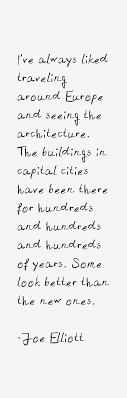 I've always liked
traveling
around Europe
and seeing the
architecture.
The buildings in
capital cities
have been there
for hundreds
and hundreds
and hundreds
of years. Some
look better than
the new ones.
-Joe Elliott